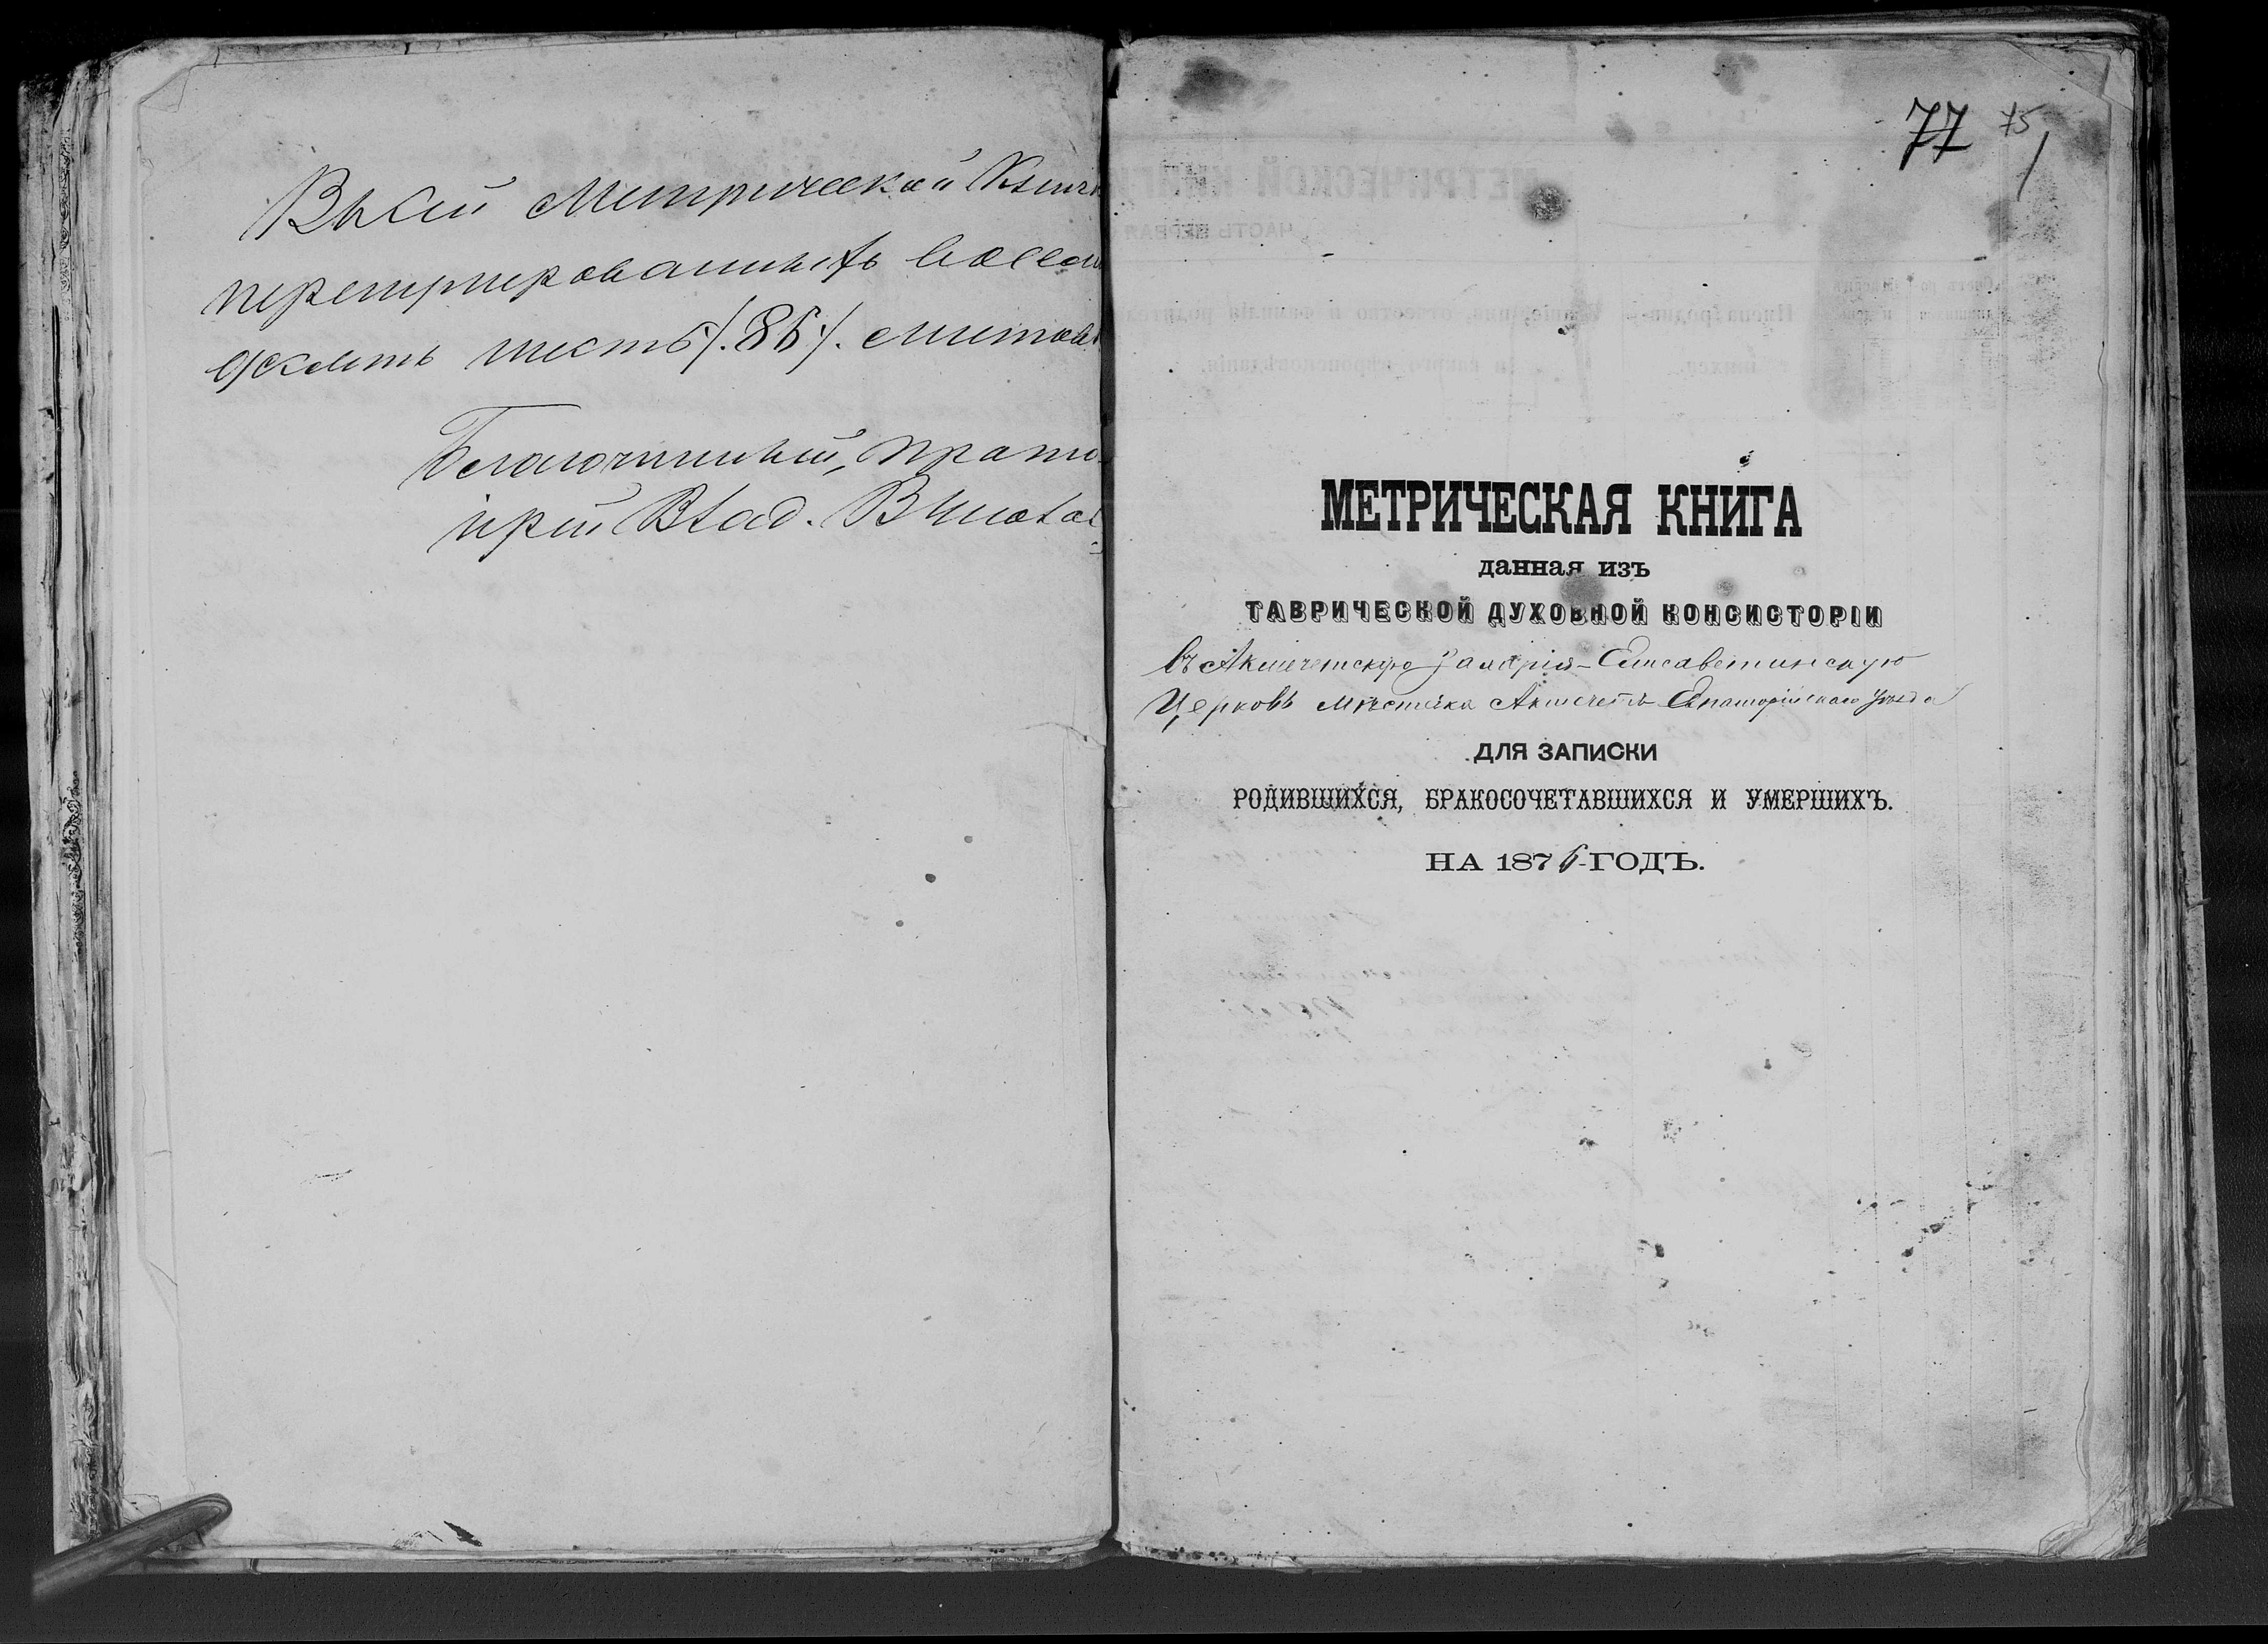 Въ сей Метрической Книг
перенумерованныхъ восем
десятъ шесть /.86/. листовъ
Благочинный, прото-
іерей Влад.
77 75
1
МЕТРИЧЕСКАЯ КНИГА
данная изъ
ТАВРИЧЕСКОЙ ДУХОВНОЙ КОНСИСТОРІИ
въ Акмечетскую Захаріе-Елисаветинскую
Церковь мѣстечка Акмечеть Евпаторійскаго уѣзда
ДЛЯ ЗАПИСКИ
РОДИВШИХСЯ, БРАКОСОЧЕТАВШИХСЯ И УМЕРШИХЪ.
НА 1876-ГОДЪ.